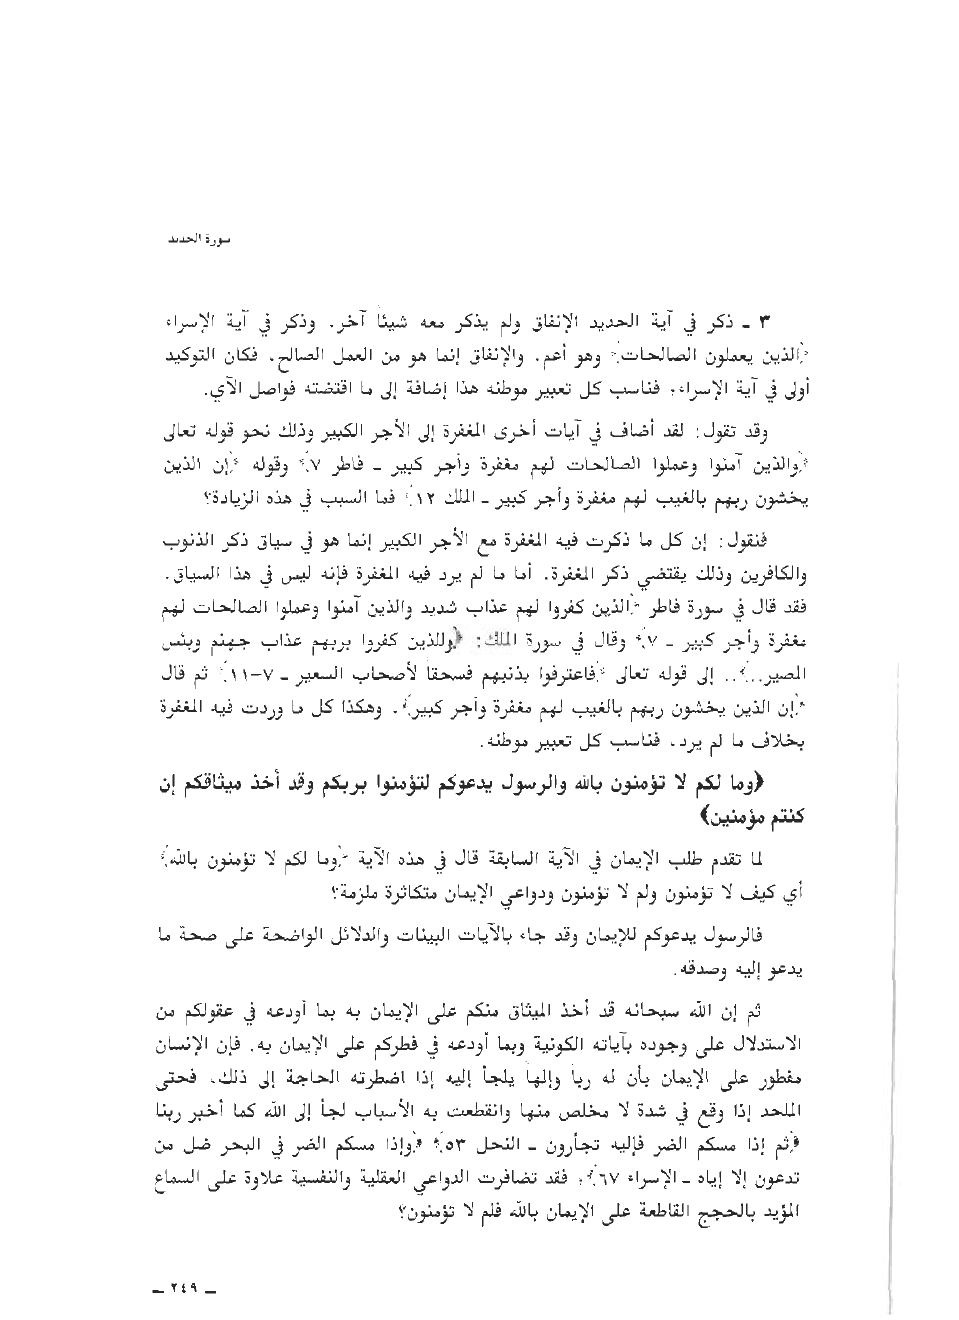 سورة الحديد
٣ ـ ذكر في آية الحديد الإنفاق ولم يذكر معه شيئاً آخر. وذكر في آية الإسراء
﴿الذين يعملون الصالحات﴾ وهو أعم. والإنفاق إنما هو من العمل الصالح. فكان التوكيد
أولى في آية الإسراء، فناسب كل تعبير موطنه هذا إضافة إلى ما اقتضته فواصل الآي.
وقد تقول: لقد أضاف في آيات أخرى المغفرة إلى الأجر الكبير وذلك نحو قوله تعالى
﴿والذين آمنوا وعملوا الصالحات لهم مغفرة وأجر كبير ـ فاطر ٧﴾ وقوله ﴿إن الذين
يخشون ربهم بالغيب لهم مغفرة وأجر كبير ـ الملك ١٢﴾ فما السبب في هذه الزيادة؟
فنقول: إن كل ما ذكرت فيه المغفرة مع الأجر الكبير إنما هو في سياق ذكر الذنوب
والكافرين وذلك يقتضي ذكر المغفرة. أما ما لم يرد فيه المغفرة فإنه ليس في هذا السياق.
فقد قال في سورة فاطر ﴿الذين كفروا لهم عذاب شديد والذين آمنوا وعملوا الصالحات لهم
مغفرة وأجر كبير ـ ٧﴾ وقال في سورة الملك: ﴿وللذين كفروا بربهم عذاب جهنم وبئس
المصير...﴾.. إلى قوله تعالى ﴿فاعترفوا بذنبهم فسحقاً لأصحاب السعير ـ ٧-١١﴾ ثم قال
﴿إن الذين يخشون ربهم بالغيب لهم مغفرة وأجر كبير﴾. وهكذا كل ما وردت فيه المغفرة
بخلاف ما لم يرد. فناسب كل تعبير موطنه.
﴿وما لكم لا تؤمنون بالله والرسول يدعوكم لتؤمنوا بربكم وقد أخذ ميثاقكم إن
كنتم مؤمنين﴾
لما تقدم طلب الإيمان في الآية السابقة قال في هذه الآية ﴿وما لكم لا تؤمنون بالله﴾
أي كيف لا تؤمنون ولم لا تؤمنون ودواعي الإيمان متكاثرة ملزمة؟
فالرسول يدعوكم للإيمان وقد جاء بالآيات البينات والدلائل الواضحة على صحة ما
يدعو إليه وصدقه.
ثم إن الله سبحانه قد أخذ الميثاق منكم على الإيمان به بما أودعه في عقولكم من
الاستدلال على وجوده بآياته الكونية وبما أودعه في فطركم على الإيمان به. فإن الإنسان
مفطور على الإيمان بأن له رباً وإلهاً يلجأ إليه إذا اضطرته الحاجة إلى ذلك، فحتى
الملحد إذا وقع في شدة لا مخلص منها وانقطعت به الأسباب لجأ إلى الله كما أخبر ربنا
﴿ثم إذا مسكم الضر فإليه تجأرون ـ النحل ٥٣﴾ ﴿وإذا مسكم الضر في البحر ضل من
تدعون إلا إياه ـ الإسراء ٦٧﴾، فقد تضافرت الدواعي العقلية والنفسية علاوة على السماع
المؤيد بالحجج القاطعة على الإيمان بالله فلم لا تؤمنون؟
ـ ٢٤٩ ـ